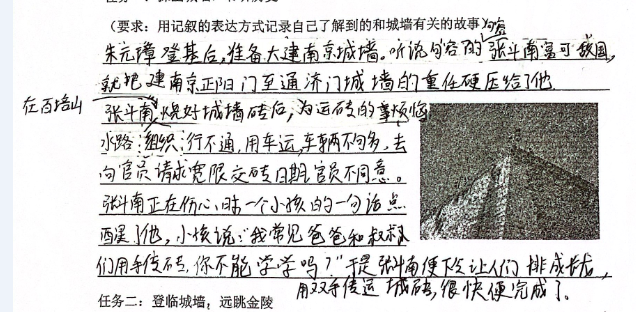 (要求:用记叙的表达方式记录自己了解到的和城墙有关的故事)
朱元璋登基后,准备大建南京城墙。听说句容的张斗南富可敌国,
就把建南京正阳门至通济门城墙的重任硬压给了他
在百培山
张斗南,烧好城墙砖后,为运砖的事烦恼
水路 组织 行不通,用车运,车辆不句多,去
向官员请求宽限交砖日期,官员不同意。
张斗南正在伤心时一个小孩的一句话点
醒了他,小孩说:“我常见爸爸和叔叔
们用手传砖,你不能学学吗?”于是张斗南便下令让人们排成长龙,
用双手传运城砖,很快便完成了。
任务二:登临城墙,远眺金陵